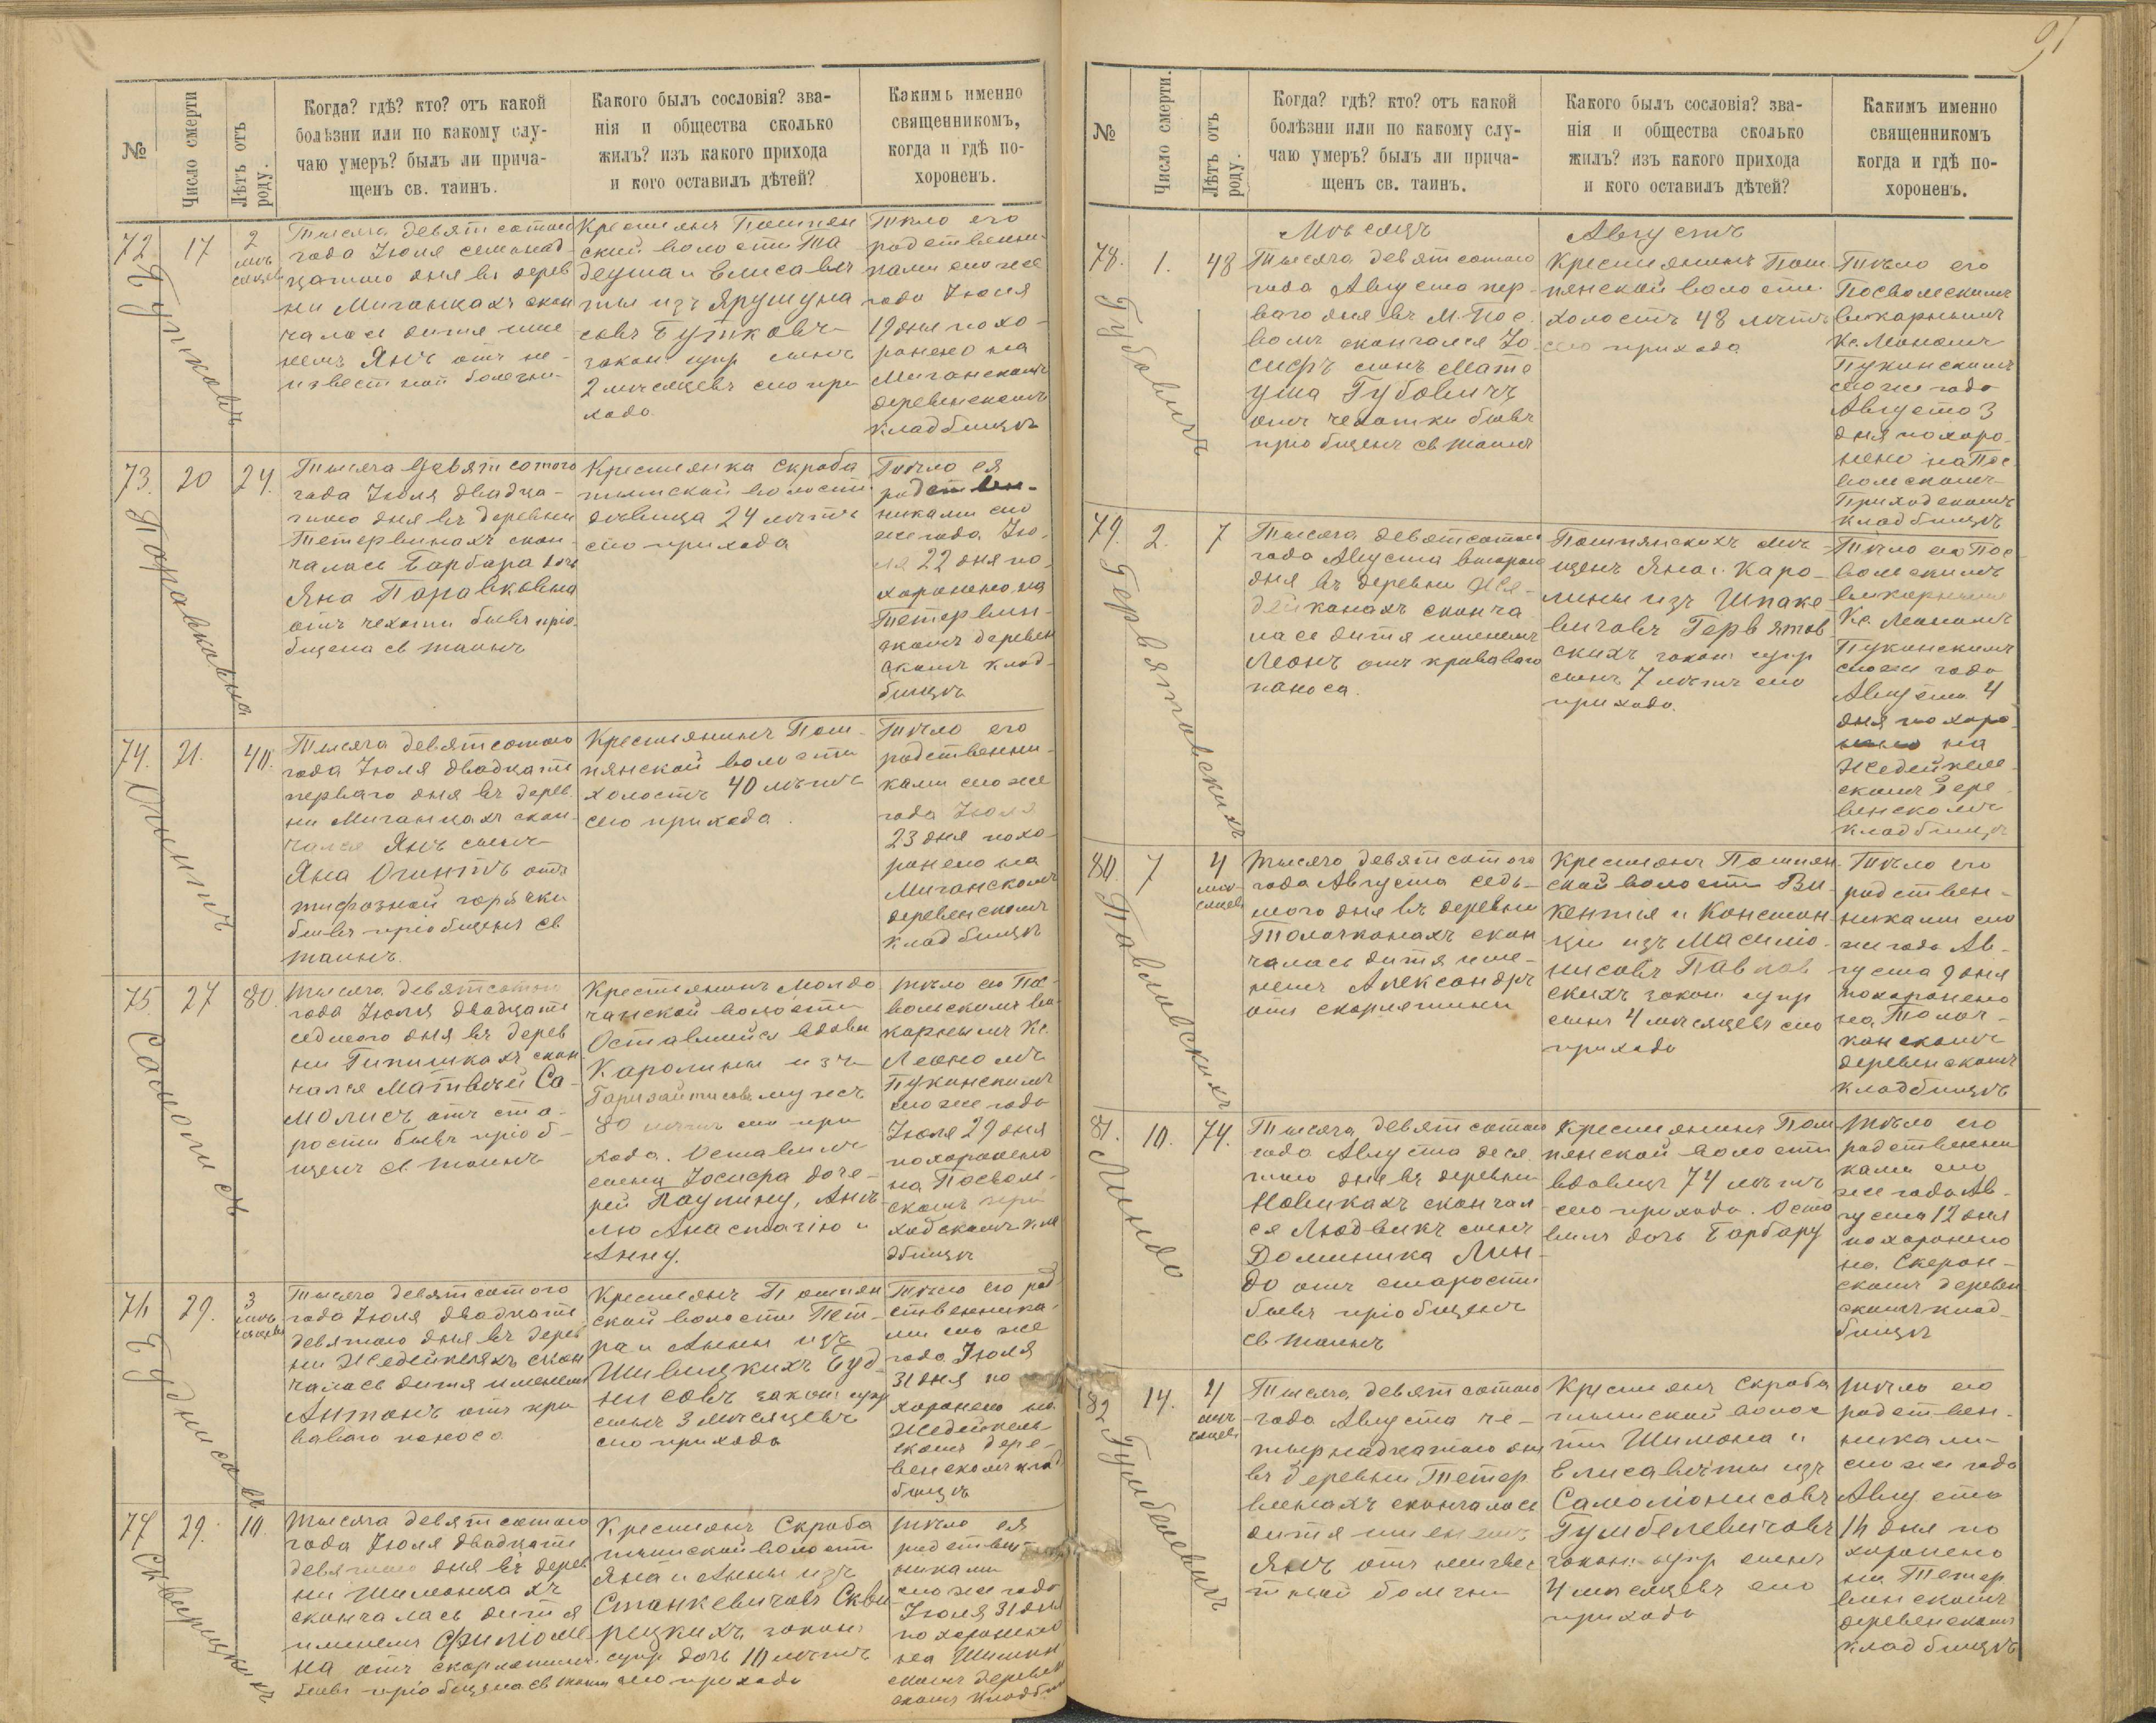 91
№
Число смерти
Лѣтъ отъ роду.
Когда? гдѣ? кто? отъ какой
болѣзни или по какому слу-
чаю умеръ? былъ ли прича-
щенъ св. таинъ.
Какого былъ сословія? зва-
нія и общества сколько
жилъ? изъ какого прихода
и кого оставилъ дѣтей?
Какимъ именно
священникомъ,
когда и гдѣ по-
хороненъ.
72.
17
2
мѣ
сяцев
Бутковъ
Тысяча девятсотаго
года Іюля семонад
цатаго дня въ дерев
ни Миганцахъ скон
чалось дитя име
немъ Янъ отъ не-
известной болезни
Крестьянъ Пошпян
ской волости Та
деуша и Елисаве
ты изъ Ярушуна
совъ Бутковъ
закон. супр сынъ
2 мѣсяцевъ сего при
хода
Тѣло его
родственни-
ками сего же
года Іюля
19 дня похо-
ронено на
Миганскомъ
деревенскомъ
кладбищѣ
73.
20
24.
Поравковна
Тысяча девятсотого
года Іюля двадца-
таго дня въ деревни
Тетервинахъ скон-
чалась Барбара дочь
Яна Поравковна
отъ чехотки бывъ пріо
бщена св таинъ
Крестьянка Скроба
тышской волости
дѣвица 24 лѣтъ
сего прихода
Тѣло ея
родствен-
никами сего
же года Ію-
ля 22 дня по-
хоронено на
Тетервин-
скомъ деревен
скомъ клад-
бищѣ
74.
21.
40.
Огинтъ
Тысяча девятсотаго
года Іюля двадцать
перваго дня въ дерев
ни Миганцахъ скон-
чался Янъ сынъ
Яна Огинтъ отъ
тифозной горячки
бывъ пріобщенъ св
таинъ.
Крестьянинъ Пош-
пянской волости
холостъ 40 лѣтъ
сего прихода.
Тѣло его
родственни-
ками сего же
года Іюля
23 дня похо-
ронено на
Миганскомъ
деревенскомъ
кладбищѣ
75.
27
80.
Самолисъ
Тысяча девятсотаго
года Іюля двадцать
седмого дня въ дерев
ни Гипишкахъ скон
чался Матвѣй Са-
молисъ отъ ста-
рости бывъ пріоб-
щенъ св таинъ
Крестьянинъ Молдо
чанской волости
Оставшейся вдовы
Каролины изъ
мужъ
80 лѣтъ сего при
хода. Оставилъ
сына Іосифа доче-
рей Паулину, Анѣ
лю Анастазію и
Анну.
Тѣло его По-
вольскимъ ви
карнымъ Кс.
Леономъ
Пукинскимъ
сего же года
Іюля 29 дня
похоронено
на Посволь-
скомъ при
ходскомъ кла
дбищѣ
76
29.
3
мѣ
сяцевъ
Буднисовъ
Тысяча девятсотого
года Іюля двадцать
девятаго дня въ дерев
ни Жедейкняхъ скон
чалась дитя именемъ
Антонъ отъ кро
ваваго поноса
Крестьянъ Пошпян
ской волости Пет-
ра и Анны изъ
Шивицкихъ Буд
нисовъ закон. супр
сынъ 3 мѣсяцевъ
сего прихода
Тѣло его род
ственника-
ми сего же
года Іюля
31 дня по
хоронено на
Жедейкнь-
скомъ дере-
венскомъ клад
бищѣ
77
29.
10.
Сквирецкихъ
Тысяча девятсотаго
года Іюля двадцать
девятаго дня въ дерев
ни Шиманцахъ
скончалась дитя
именемъ Филоме
на отъ скорлатины
бывъ пріобщена св таин
Крестьянъ Скроба
тышской волости
Яна и Анны изъ
Станкевичовъ Скви
рецкихъ закон:
супр дочь 10 лѣтъ
сего прихода
Тѣло ея
родствен-
никами
сего же года
Іюля 31 дня
похоронено
на Шиман
скомъ деревен
скомъ кладби
№
Число смерти.
Лѣтъ отъ роду.
Когда? гдѣ? кто? отъ какой
болѣзни или по какому слу-
чаю умеръ? былъ ли прича-
щенъ св. таинъ.
Какого былъ сословія? зва-
нія и общества сколько
жилъ? изъ какого прихода
и кого оставилъ дѣтей?
Какимъ именно
священникомъ
когда и гдѣ по-
хороненъ.
Мѣсяцъ Августъ
78.
1.
48
Губовичъ
Тысяча девятсотаго
года Августа пер-
ваго дня въ М. Пос-
волѣ скончался Іо-
сифъ сынъ Мате
уша Губовичъ
отъ чехотки бывъ
пріобщенъ св таинъ
Крестьянинъ Пош-
пянской волости
холостъ 48 лѣтъ
сего прихода
Тѣло его
Посвольскимъ
викарнымъ
Кс. Леономъ
Пукинскимъ
сего же года
Августа 3
дня похоро-
нено на Пос-
вольскомъ
Приходскомъ
кладбищѣ
79.
2.
7
Гервятовскихъ
Тысяча девятсотаго
года Августа втораго
дня въ деревни Же-
дейконахъ сконча
лась дитя именемъ
Леонъ отъ кроваваго
поноса.
Пошпянскихъ мѣ-
щанъ Яна и Каро-
лины изъ Шпаке
вичовъ Гервятов
скихъ закон супр
сынъ 7 лѣтъ сего
прихода.
Тѣло его Пос
вольскимъ
викарнымъ
Кс. Леономъ
Пукинскимъ
сего же года
Августа 4
дня похоро
нено на
Жедейкнь-
скомъ дере
венскомъ
кладбищѣ
80.
7
4
мѣ-
сяцев
Павловскихъ
Тысяча девятсотого
года Августа седь-
мого дня въ деревни
Толочконахъ скон
чалась дитя име-
немъ Александръ
отъ скорлятины
Крестьянъ Пошпян
ской волости Ви-
кентія и Констан
ціи изъ Масіліо-
нисовъ Павлов
скихъ закон супр
сынъ 4 мѣсяцевъ сего
прихода
Тѣло его
родствен-
никами сего
же года Ав-
густа 9 дня
похоронено
на Толоч-
конскомъ
деревенскомъ
кладбищѣ
81.
10.
74.
Линдо
Тысяча девятсотаго
года Августа деся
таго дня въ деревни
Новикахъ скончал
ся Людвикъ сынъ
Доминика Лин-
до отъ старости
бывъ пріобщенъ
св таинъ
Крестьянинъ Пош
пянской волости
вдовецъ 74 лѣтъ
сего прихода. Оста
вилъ дочь Барбару
Тѣло его
родственни
ками сего
же года Ав-
густа 12 дня
похоронено
на Скерон-
скомъ деревен
скомъ клад-
бищѣ
82
14.
4
мѣ
сяцев
Гумбелевичъ
Тысяча девятсотаго
года Августа че-
тырнадцатаго дня
въ деревни Тетер
винахъ скончалась
дитя именемъ
Янъ отъ неизвес
тной болезни
Крестьянъ Скроба
тышской волос
ти Шимона и
Елисаветы изъ
Самоліонисовъ
Гумбелевичовъ
закон: супр сынъ
4 мѣсяцевъ сего
прихода
Тѣло его
родствен-
никами
сего же года
Августа
16 дня по
хоронено
на Тетер
винскомъ
деревенскомъ
кладбищѣ